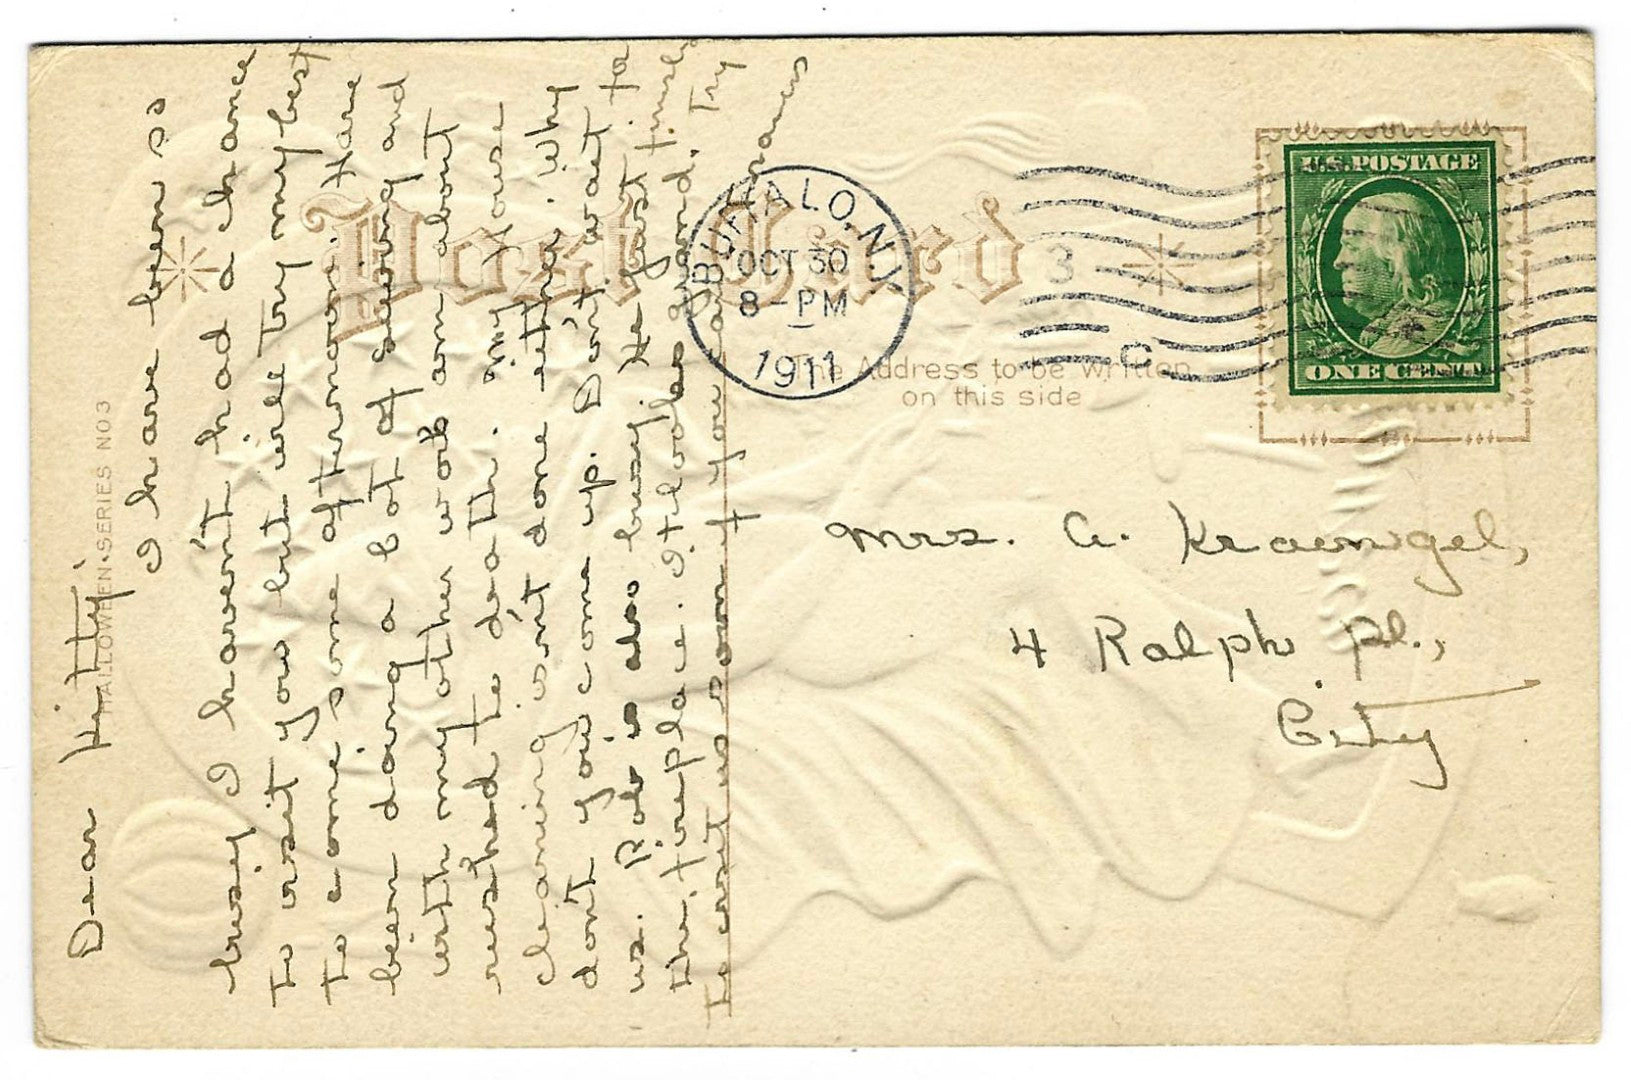 HALLOWEEN · SERIES NO 3
Post Card
The Address to be written
on this side
BUFFALO, N.Y.
OCT 30
8-PM
1911
3
C
U.S. POSTAGE
ONE CENT
Dear Kitty:
I have been so
busy I haven't had a chance
to visit you but will try my best
to come some afternoon. Have
been doing a lot of sewing and
with my other work am about
rushed to death. My house
cleaning isn't done either. Why
don't you come up. Don't wait for
us. Rob is also busy. He just finished
the fireplace. It looks grand. Try
to come us soon if you can.
Mrs. A. Kraengel,
4 Ralph Pl.,
City